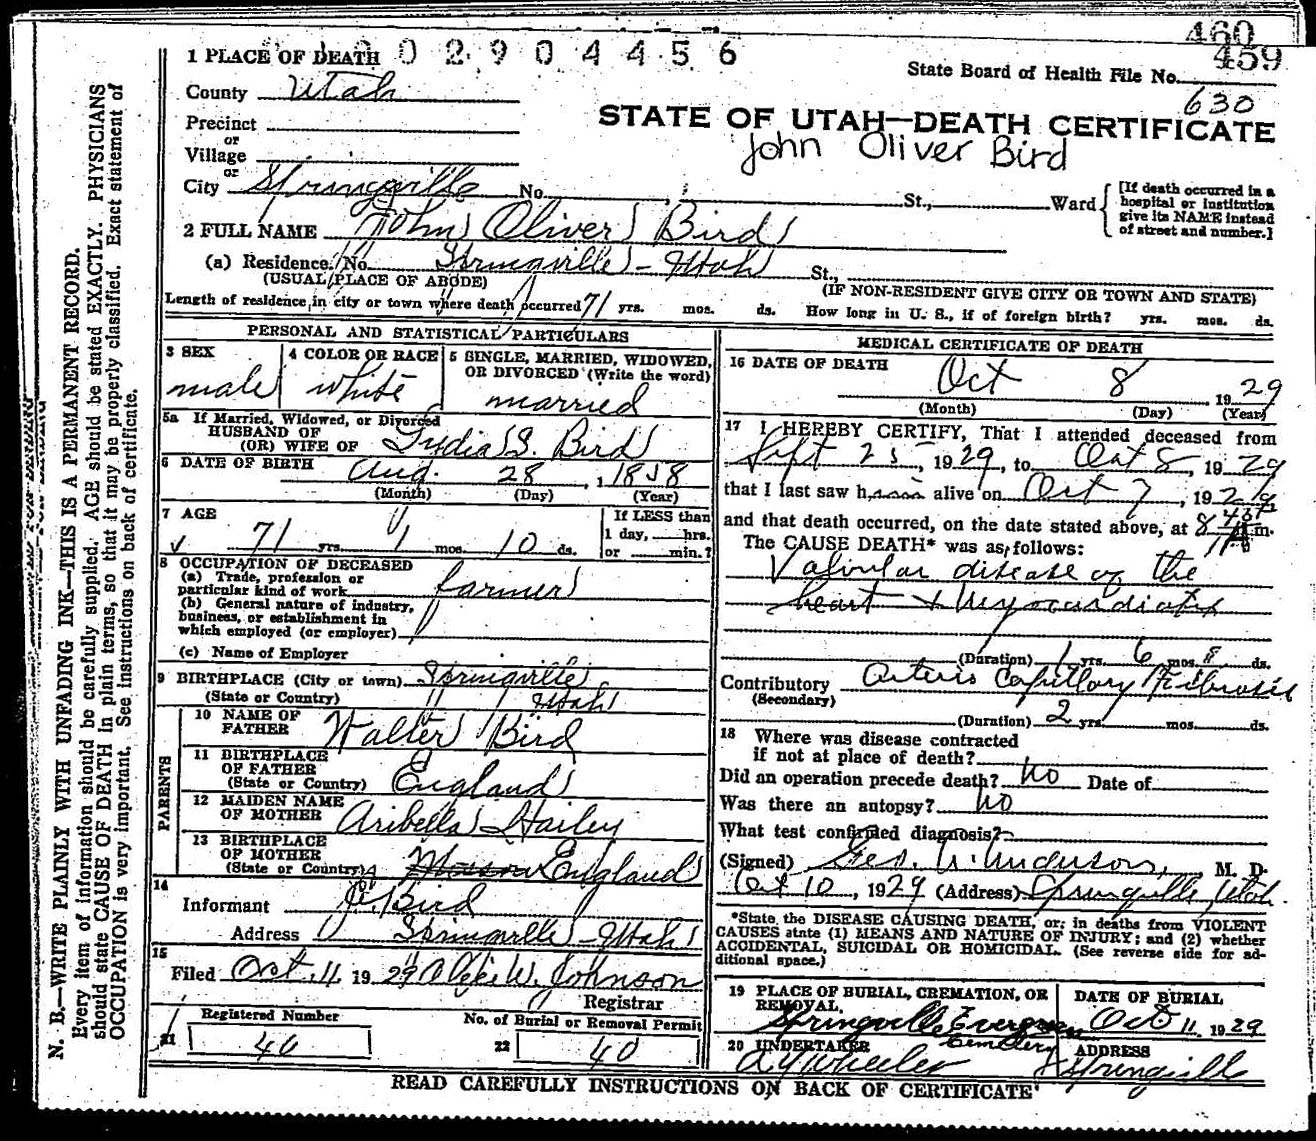 460
459
1 PLACE OF DEATH 0 0 2 9 0 4 4 5 6
State Board of Health File No.
County Utah
630
Precinct
STATE OF UTAH—DEATH CERTIFICATE
or
Village
John Oliver Bird
or
City Springville No. St., Ward
[If death occurred in a
hospital or institution
give its NAME instead
of street and number.]
2 FULL NAME John Oliver Bird
(a) Residence. No. Springville - Utah St.,
(USUAL PLACE OF ABODE) (IF NON-RESIDENT GIVE CITY OR TOWN AND STATE)
Length of residence in city or town where death occurred 71 yrs. mos. ds. How long in U. S., if of foreign birth? yrs. mos. ds.
PERSONAL AND STATISTICAL PARTICULARS
3 SEX
male
4 COLOR OR RACE
white
5 SINGLE, MARRIED, WIDOWED,
OR DIVORCED (Write the word)
married
5a If Married, Widowed, or Divorced
HUSBAND OF
(OR) WIFE OF Lydia S. Bird
6 DATE OF BIRTH Aug. 28, 1858
(Month) (Day) (Year)
7 AGE
71 yrs. 1 mos. 10 ds.
If LESS than
1 day, hrs.
or min.?
8 OCCUPATION OF DECEASED
(a) Trade, profession or
particular kind of work farmer
(b) General nature of industry,
business, or establishment in
which employed (or employer)
(c) Name of Employer
9 BIRTHPLACE (City or town) Springville
(State or Country) Utah
PARENTS
10 NAME OF
FATHER Walter Bird
11 BIRTHPLACE
OF FATHER
(State or Country) England
12 MAIDEN NAME
OF MOTHER Aribella Hailey
13 BIRTHPLACE
OF MOTHER
(State or Country) England
14
Informant Bird
Address Springville - Utah
15
Filed Oct. 11 1929 W. Johnson
Registrar
Registered Number
21 40
No. of Burial or Removal Permit
22 40
MEDICAL CERTIFICATE OF DEATH
16 DATE OF DEATH
Oct 8 1929
(Month) (Day) (Year)
17 I HEREBY CERTIFY, That I attended deceased from
Sept 25, 1929, to Oct 8, 1929
that I last saw h alive on Oct 7, 1929
and that death occurred, on the date stated above, at 8 m.
The CAUSE DEATH* was as follows:
Valvular disease of the
heart + Myocarditis
(Duration) 1 yrs. 6 mos. 8 ds.
Contributory Arterio Capillary Fibrosis
(Secondary)
(Duration) 2 yrs. mos. ds.
18 Where was disease contracted
if not at place of death?
Did an operation precede death? No Date of
Was there an autopsy? No
What test confirmed diagnosis?
(Signed) Geo. Anderson, M. D.
Oct 10, 1929 (Address) Springville, Utah.
*State the DISEASE CAUSING DEATH, or; in deaths from VIOLENT
CAUSES state (1) MEANS AND NATURE OF INJURY; and (2) whether
ACCIDENTAL, SUICIDAL OR HOMICIDAL. (See reverse side for ad-
ditional space.)
19 PLACE OF BURIAL, CREMATION, OR
REMOVAL.
Springville Evergreen
Cemetery
DATE OF BURIAL
Oct 11 1929
20 UNDERTAKER
A Y Wheeler
ADDRESS
Springville
READ CAREFULLY INSTRUCTIONS ON BACK OF CERTIFICATE
N. B.—WRITE PLAINLY WITH UNFADING INK—THIS IS A PERMANENT RECORD.
Every item of information should be carefully supplied. AGE should be stated EXACTLY. PHYSICIANS
should state CAUSE OF DEATH in plain terms, so that it may be properly classified. Exact statement of
OCCUPATION is very important. See instructions on back of certificate.